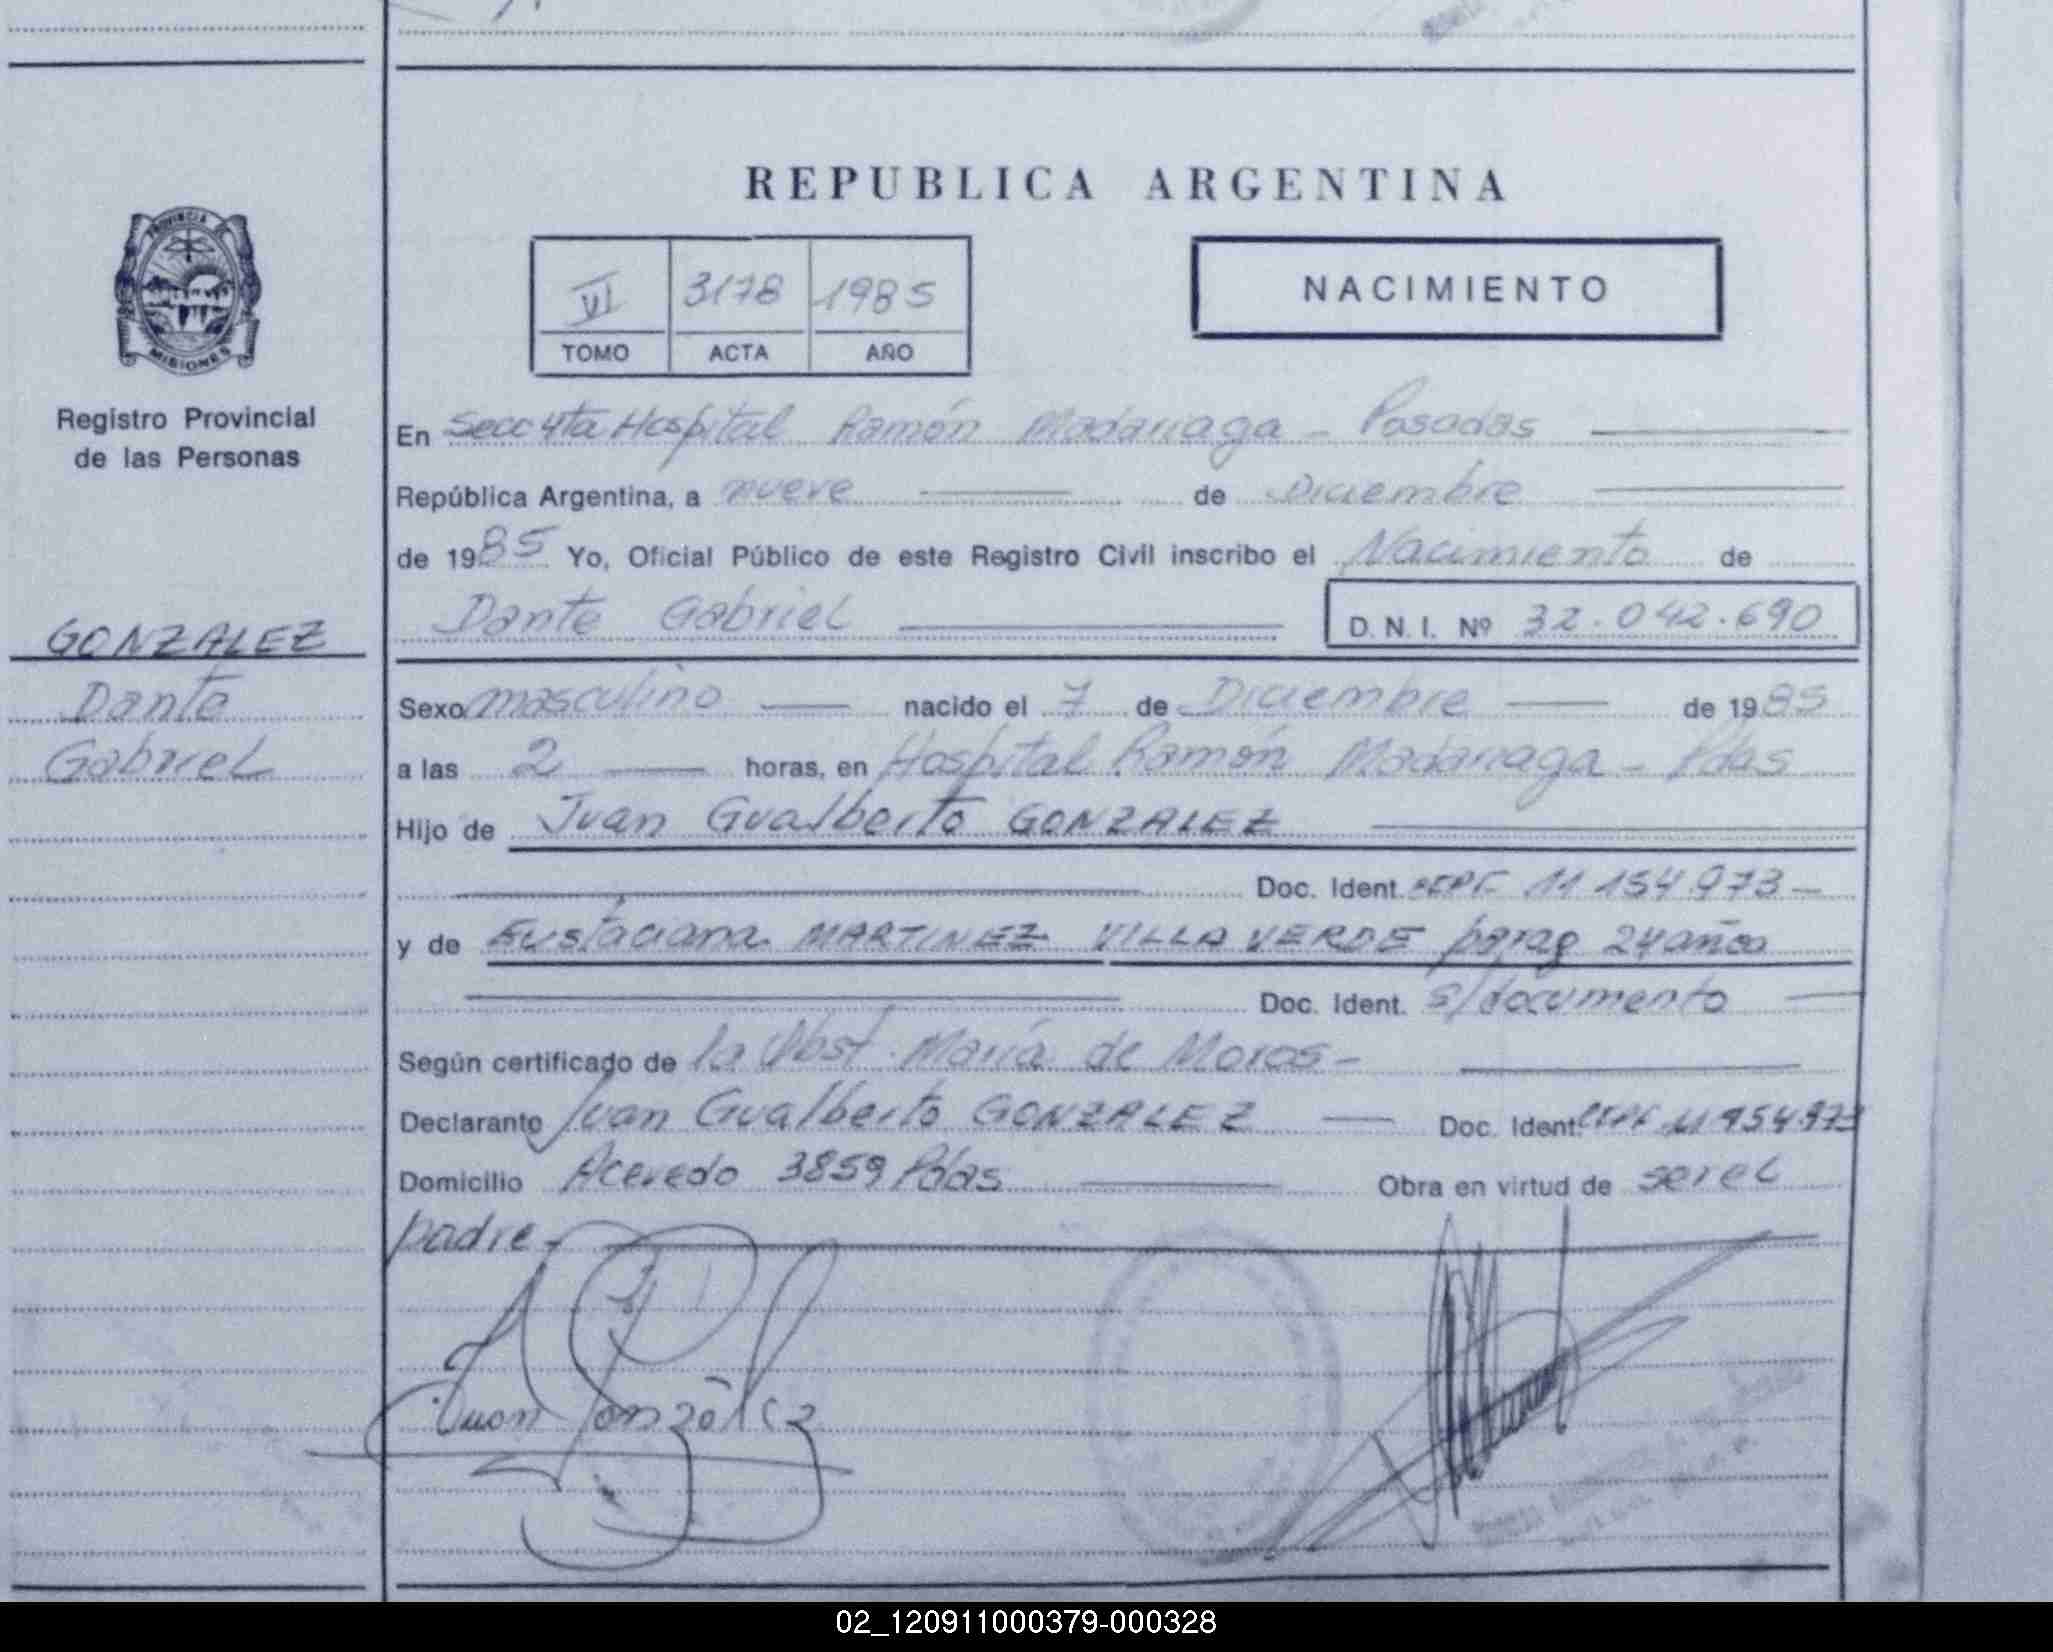 REPUBLICA ARGENTINA
VI 3178 1985
TOMO ACTA AÑO
NACIMIENTO
PROVINCIA DE
MISIONES
Registro Provincial
de las Personas
GONZALEZ
Dante
Gabriel
En Secc 4ta Hospital Ramón Madariaga - Posadas
República Argentina, a nueve de Diciembre
de 1985 Yo, Oficial Público de este Registro Civil inscribo el Nacimiento de
Dante Gabriel D. N. I. Nº 32.042.690
Sexo masculino nacido el 7 de Diciembre de 1985
a las 2 horas, en Hospital Ramón Madariaga - Pdas
Hijo de Juan Gualberto GONZALEZ
Doc. Ident. 11 154 973
y de Eustaciana MARTINEZ VILLA VERDE parag 24 años
Doc. Ident. s/documento
Según certificado de la Obst. María de Moros -
Declarante Juan Gualberto GONZALEZ Doc. Ident. 11 954.973
Domicilio Acevedo 3859 Pdas Obra en virtud de ser el
padre -
Juan González
02_120911000379-000328